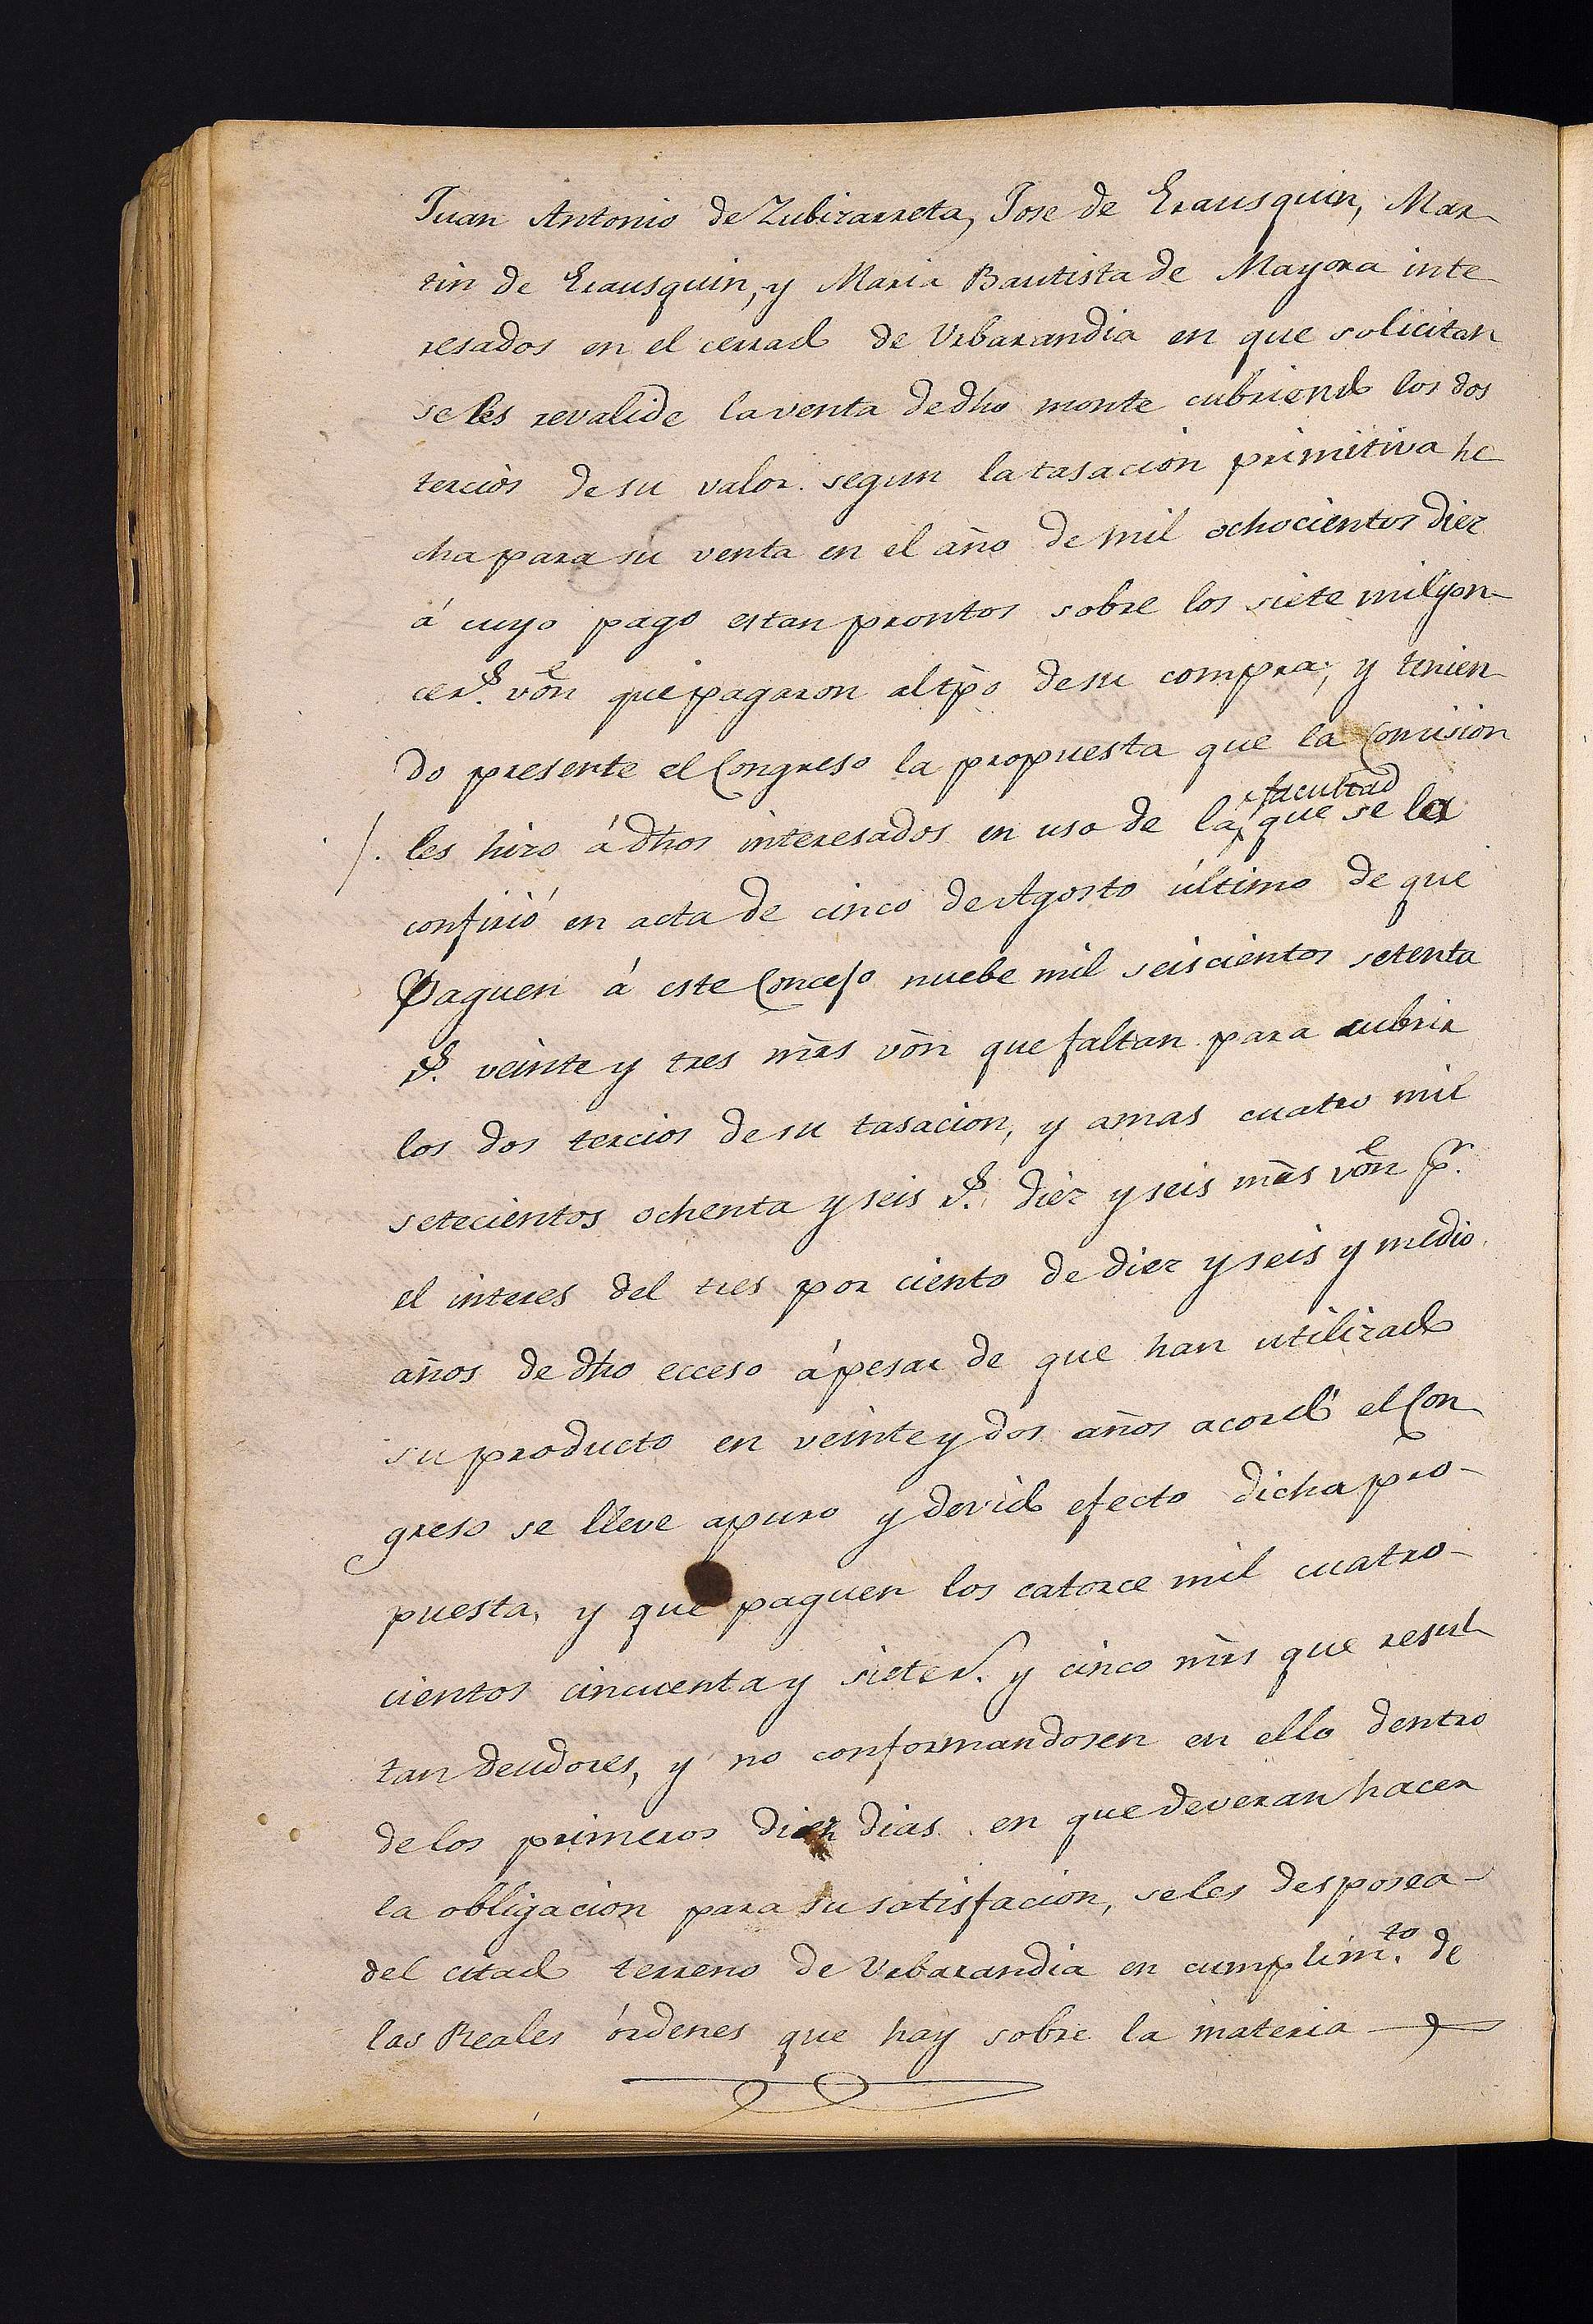 Juan Antonio de Zubizarreta, Jose de Erausquin, Mar-
tin de Erausquin, y Maria Bautista de Mayora inte
resados en el cerrado de Urbarandia en que solicitan
se les revalide la venta de dho monte cubriendo los dos
tercios de su valor segun la tasacion primitiva he
cha para su venta en el año de mil ochocientos diez
á cuyo pago estan prontos sobre los siete mil y on-
ce rs. von que pagaron al tpo de su compra; y tenien-
do presente el Congreso la propuesta que la Comision
facultad
/. les hizo á dhos interesados en uso de la que se les
confirió en acta de cinco de Agosto último de que
Paguen á este Concejo nuebe mil seiscientos setenta
rs. veinte y tres mrs von que faltan para cubrir
los dos tercios de su tasacion, y amas cuatro mil
setecientos ochenta y seis rs. diez y seis mrs von pr.
el interes del tres por ciento de diez y seis y medio
años de dho ecceso á pesar de que han utilizado
su producto en veinte y dos años acordó el Con
greso se lleve apuro y devido efecto dicha pro-
puesta, y que paguen los catorce mil cuatro-
cientos cincuenta y siete r. y cinco mrs que resul-
tan deudores, y no conformandosen en ello dentro
de los primeros diez dias en que deveran hacer
la obligacion para su satisfacion, se les desposea-
del citado terreno de Urbarandia en cumplimto. de
las Reales órdenes que hay sobre la materia